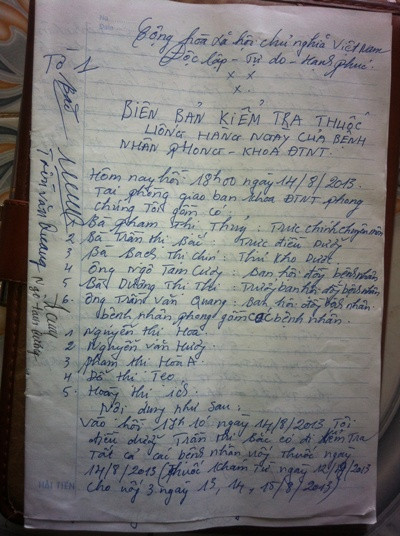 Cộng hòa xã hội chủ nghĩa Việt Nam
Độc lập - Tự do - Hạnh phúc
x x
x.
BIÊN BẢN KIỂM TRA THUỐC
UỐNG HÀNG NGÀY CỦA BỆNH
NHÂN PHONG - KHOA ĐTNT.
Hôm nay hồi 18h00 ngày 14/8/2013.
Tại phòng giao ban khoa ĐTNT phong
chúng tôi gồm có
1 Bà Phạm Thị Thủy: Trực chính chuyên môn
2 Bà Trần Thị Bắc: Trực điều dưỡng
3 Bà Bạch Thị Chín: Thủ kho Dược
4 Ông Ngô Tam Cường: Ban hội đồng bệnh nhân
5 Bà Dương Thị Thu: Trưởng ban hội đồng bệnh nhân
6. Ông Trần Văn Quang: Ban hội đồng bệnh nhân.
bệnh nhân phong gồm có bệnh nhân.
1 Nguyễn Thị Hoa
2 Nguyễn Văn Hướng
3 Phạm Thị Hòa A.
4 Đỗ Thị Tẹo
5. Hoàng Thị
Nội dung như sau.
Vào hồi 13h10 ngày 14/8/2013 Tôi
điều dưỡng Trần Thị Bắc có đi kiểm tra
tất cả các bệnh nhân uống thuốc ngày
14/8/2013 (thuốc khám từ ngày 12/8/2013
cho uống 3 ngày 13, 14, 15/8/2013)
Tổ 1
Bắc
Trần Văn Quang
Ngô Tam Cường
HẢI TIẾN